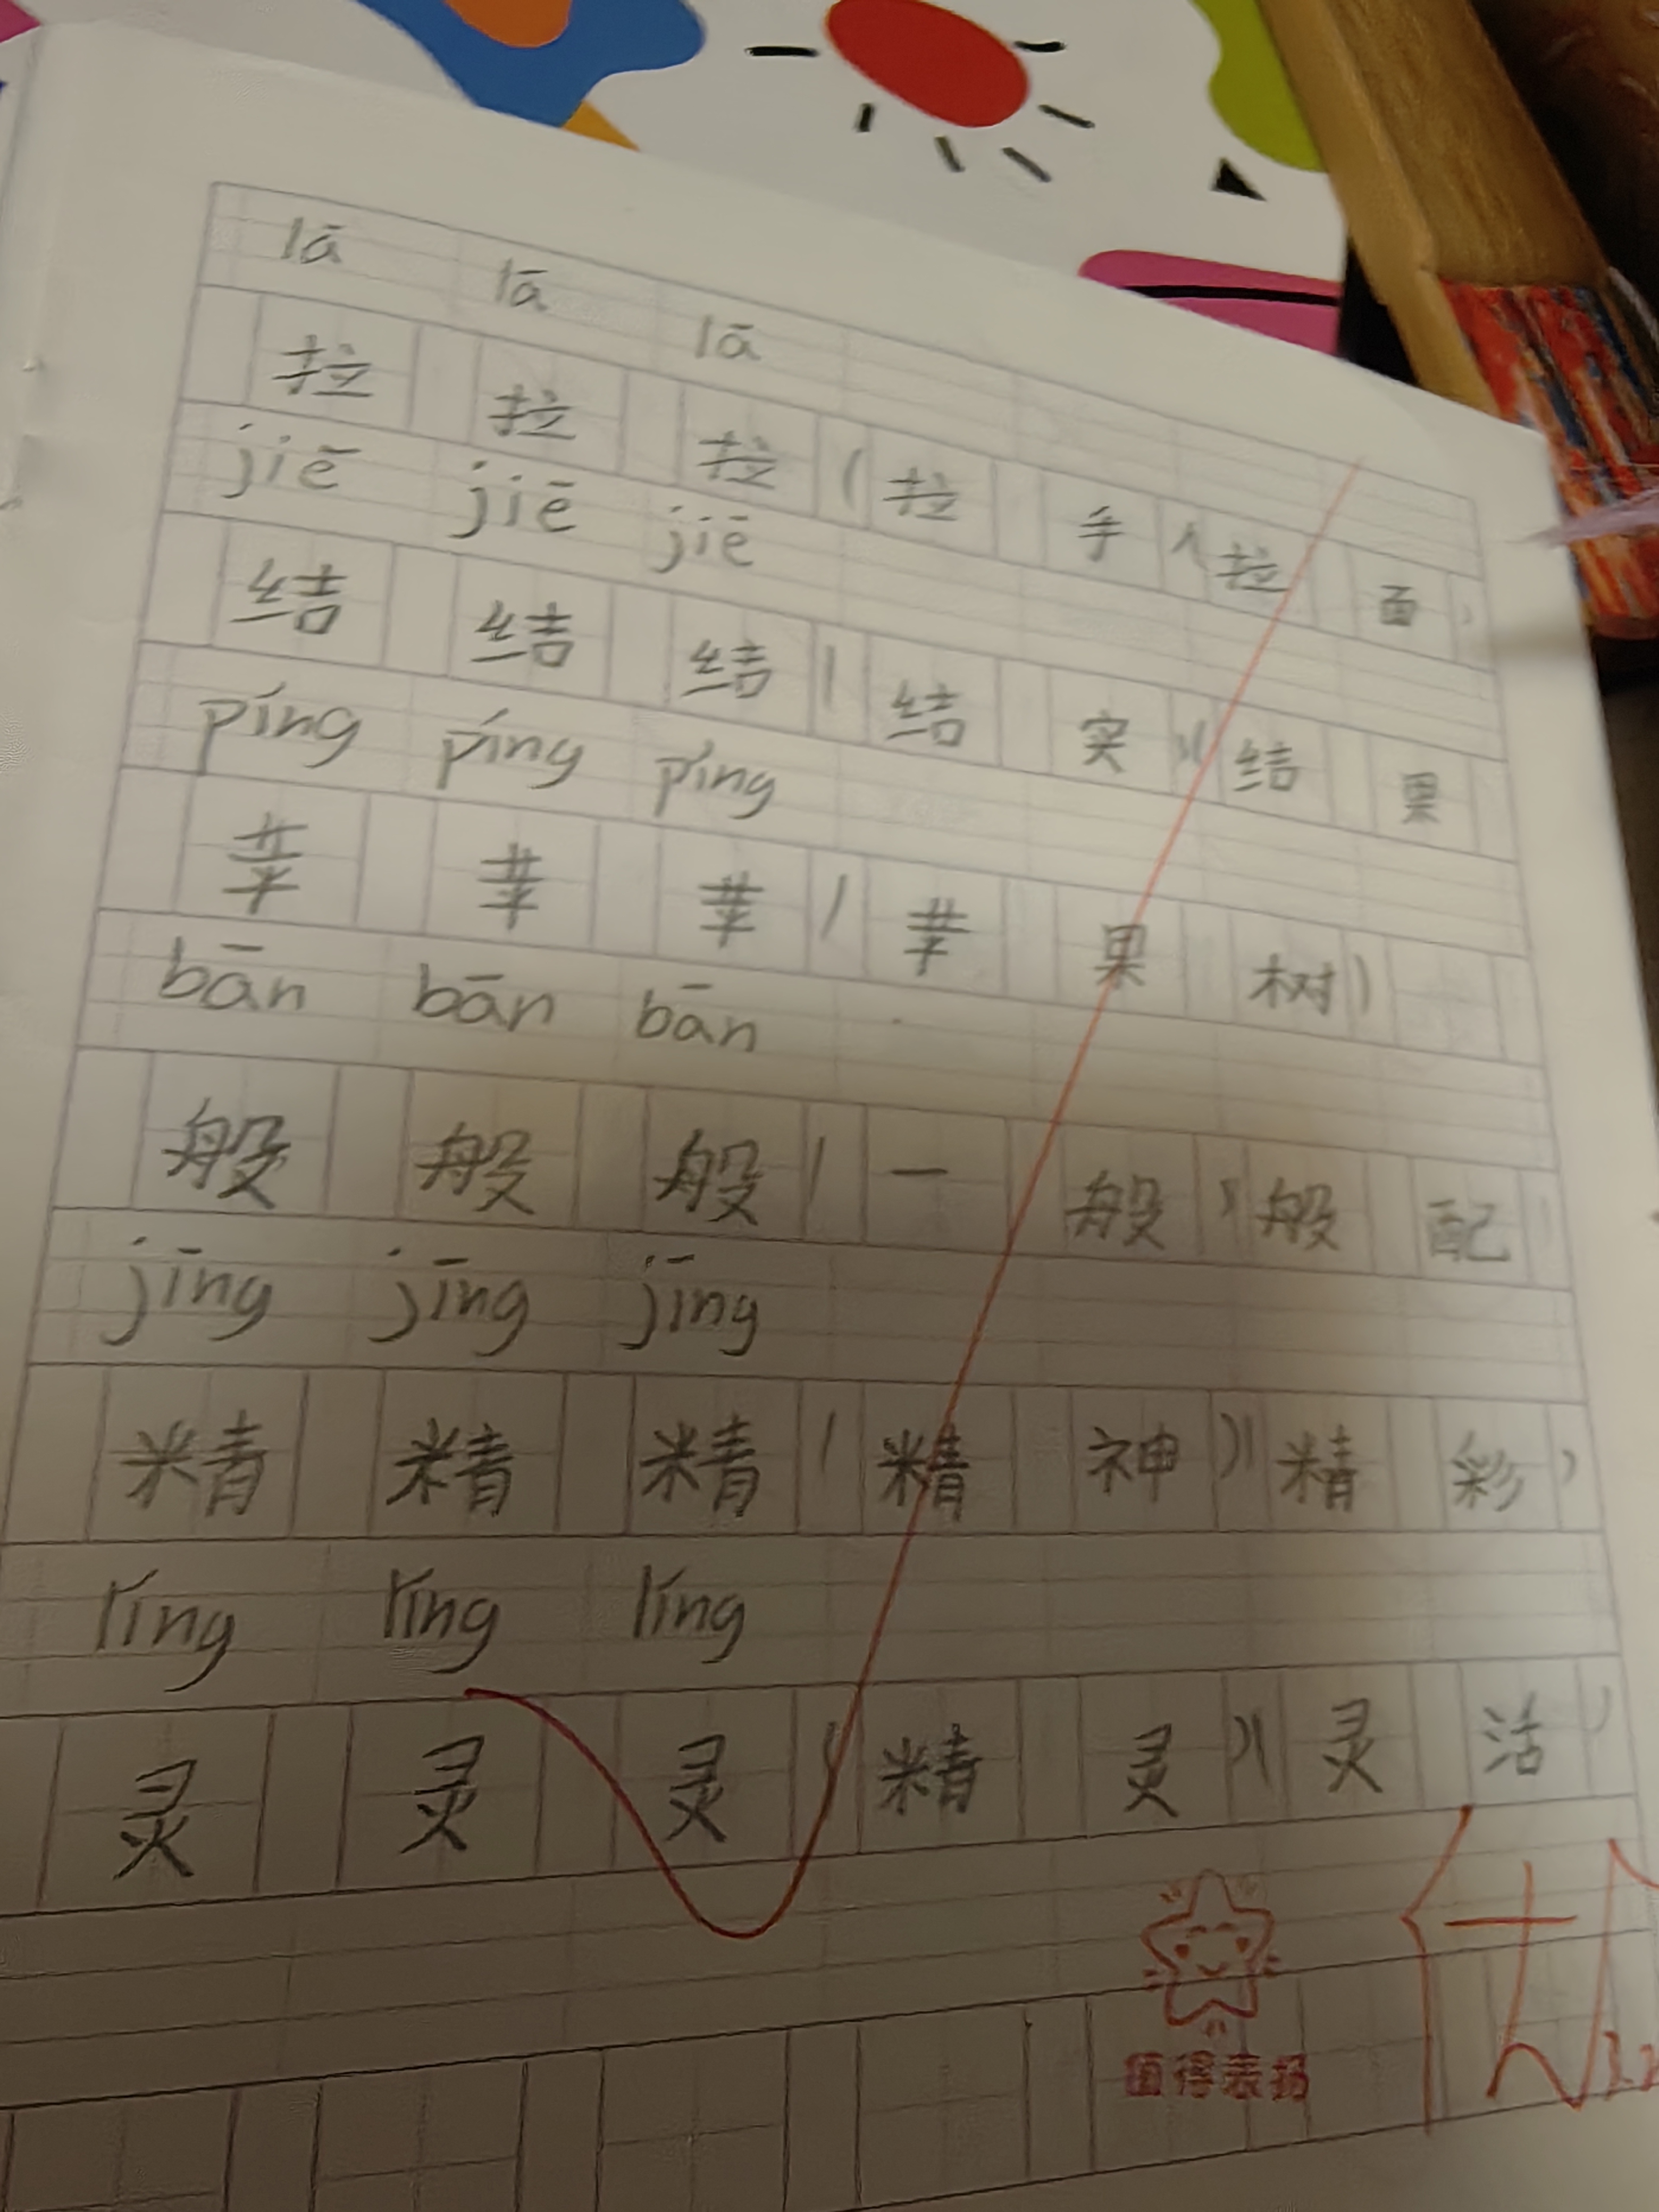 lā lā lā
拉 拉 拉 (拉 手)(拉 面)
jiē jiē jiē
结 结 结 (结 实)(结 果)
píng píng píng
苹 苹 苹 (苹 果 树)
bān bān bān
般 般 般 (一 般)(般 配)
jīng jīng jīng
精 精 精 (精 神)(精 彩)
líng líng líng
灵 灵 灵 (精 灵)(灵 活)
值得表扬
优